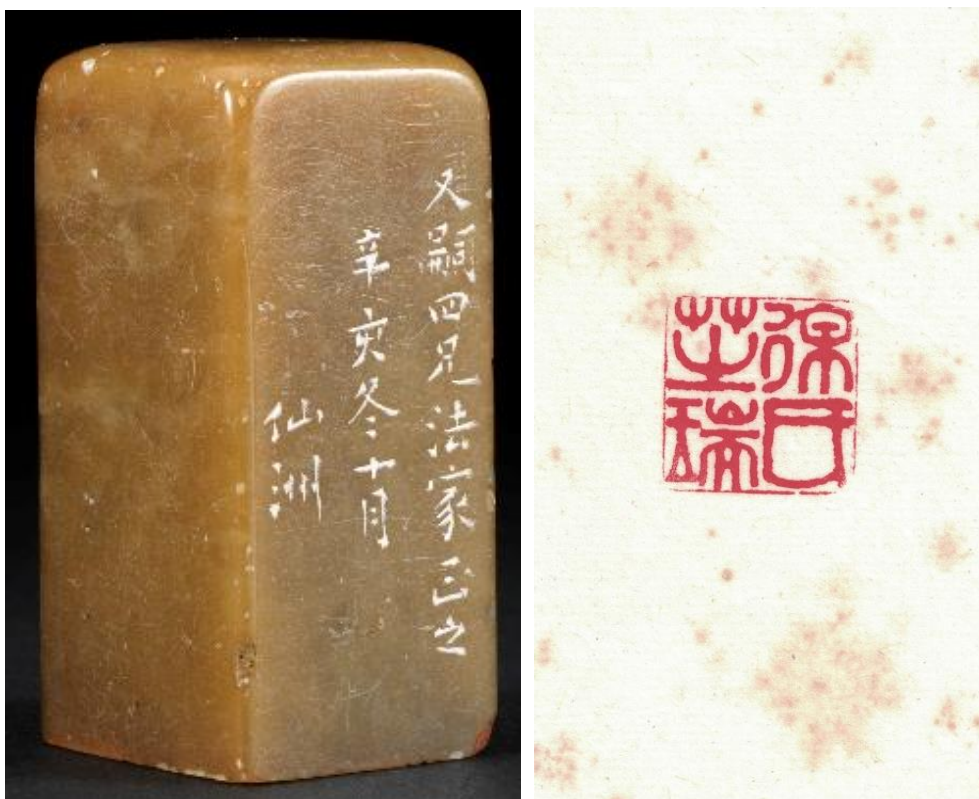 又嗣四兄法家正之
辛亥冬十月
仙洲
徐
芝瑞